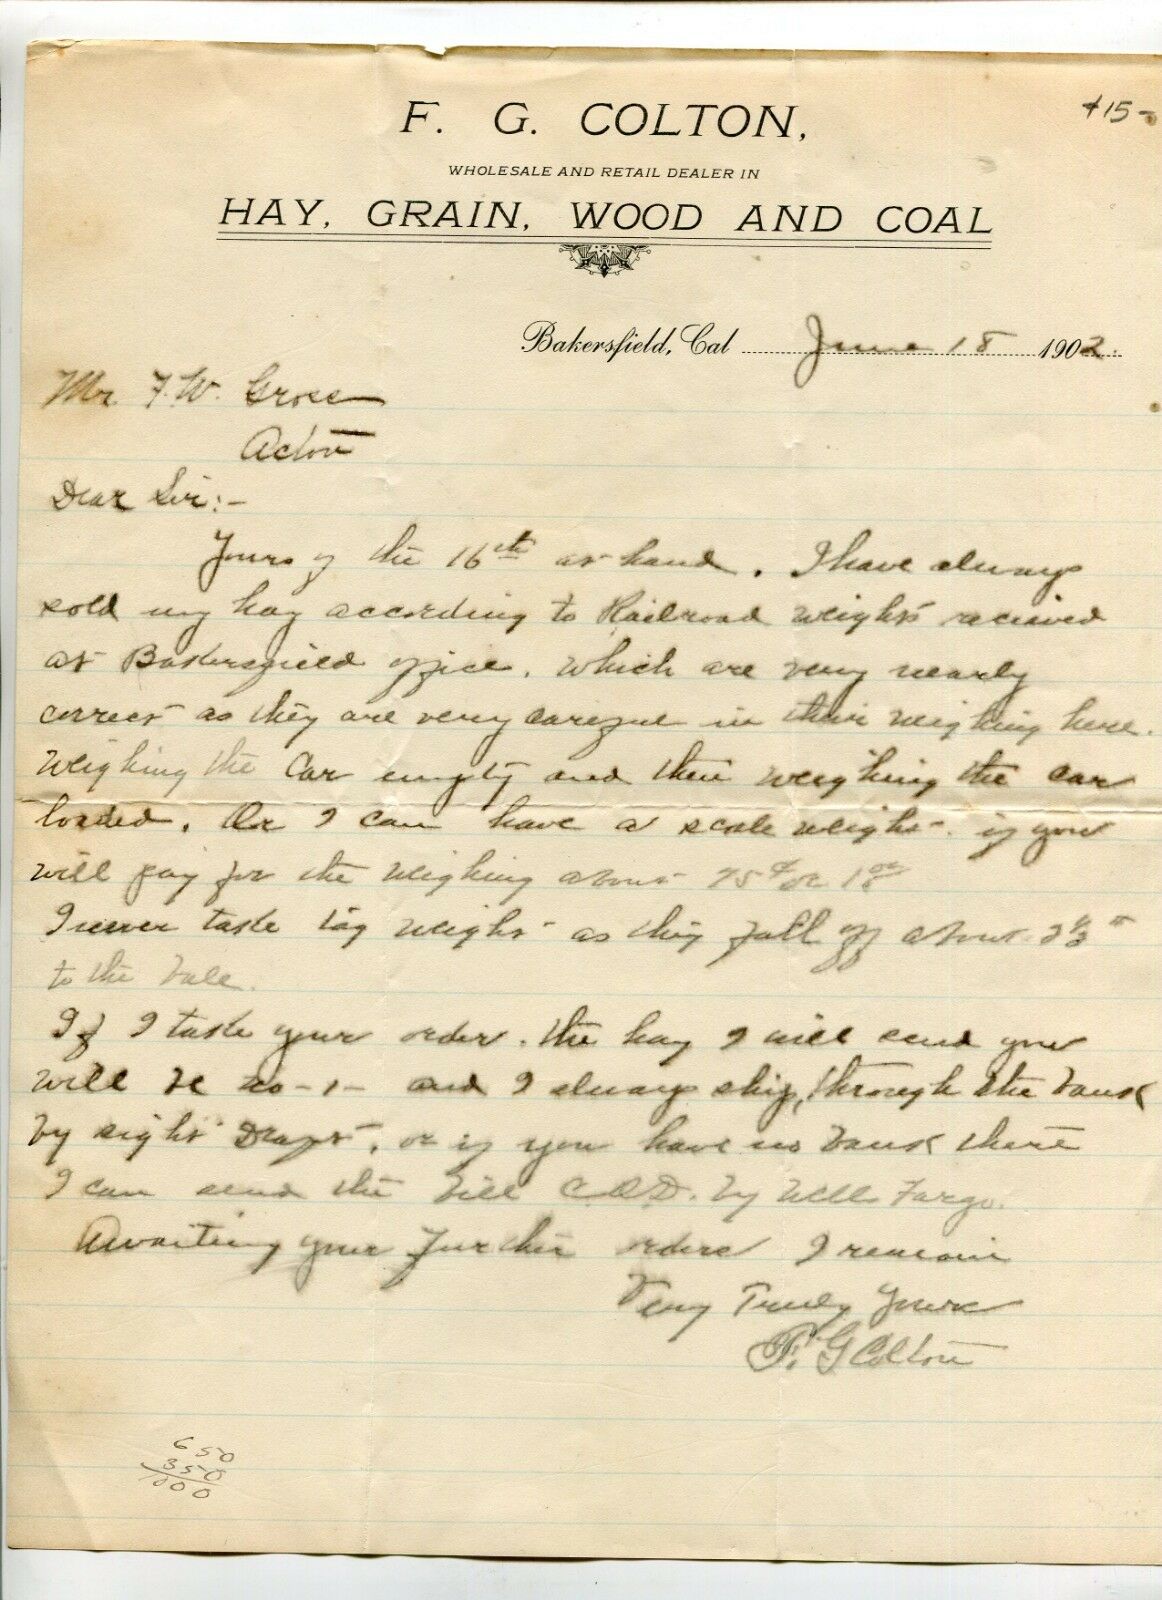 F. G. COLTON,
WHOLESALE AND RETAIL DEALER IN
HAY, GRAIN, WOOD AND COAL
15-
Bakersfield, Cal June 18 1902.
Mr. F. W. Gross
Acton
Dear Sir:-
Yours of the 16th at hand. I have always
sold my hay according to Railroad weights recieved
at Bakersfield office. which are very nearly
correct as they are very careful in their weighing here.
Weighing the Car empty and then weighing the car
loaded. Or I can have a scale weight. if you
will pay for the weighing about 75¢ or 1.00
I never take tag weight as they fall off about
to the bale.
If I take your order. the hay I will send you
will be no-1- and I always ship, through the bank
by sight Draft, or if you have no bank there
I can send the bill C.O.D. by Wells Fargo.
Awaiting your further orders I remain
Very Truly Yours
F. G Colton
650
350
1000